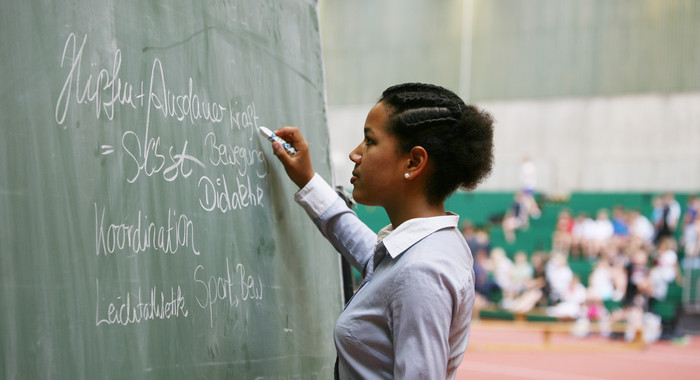 Hüpfen + Ausdauer Kraft
= Bewegung
Didaktik
Koordination
Leichtathletik Sport, Bew